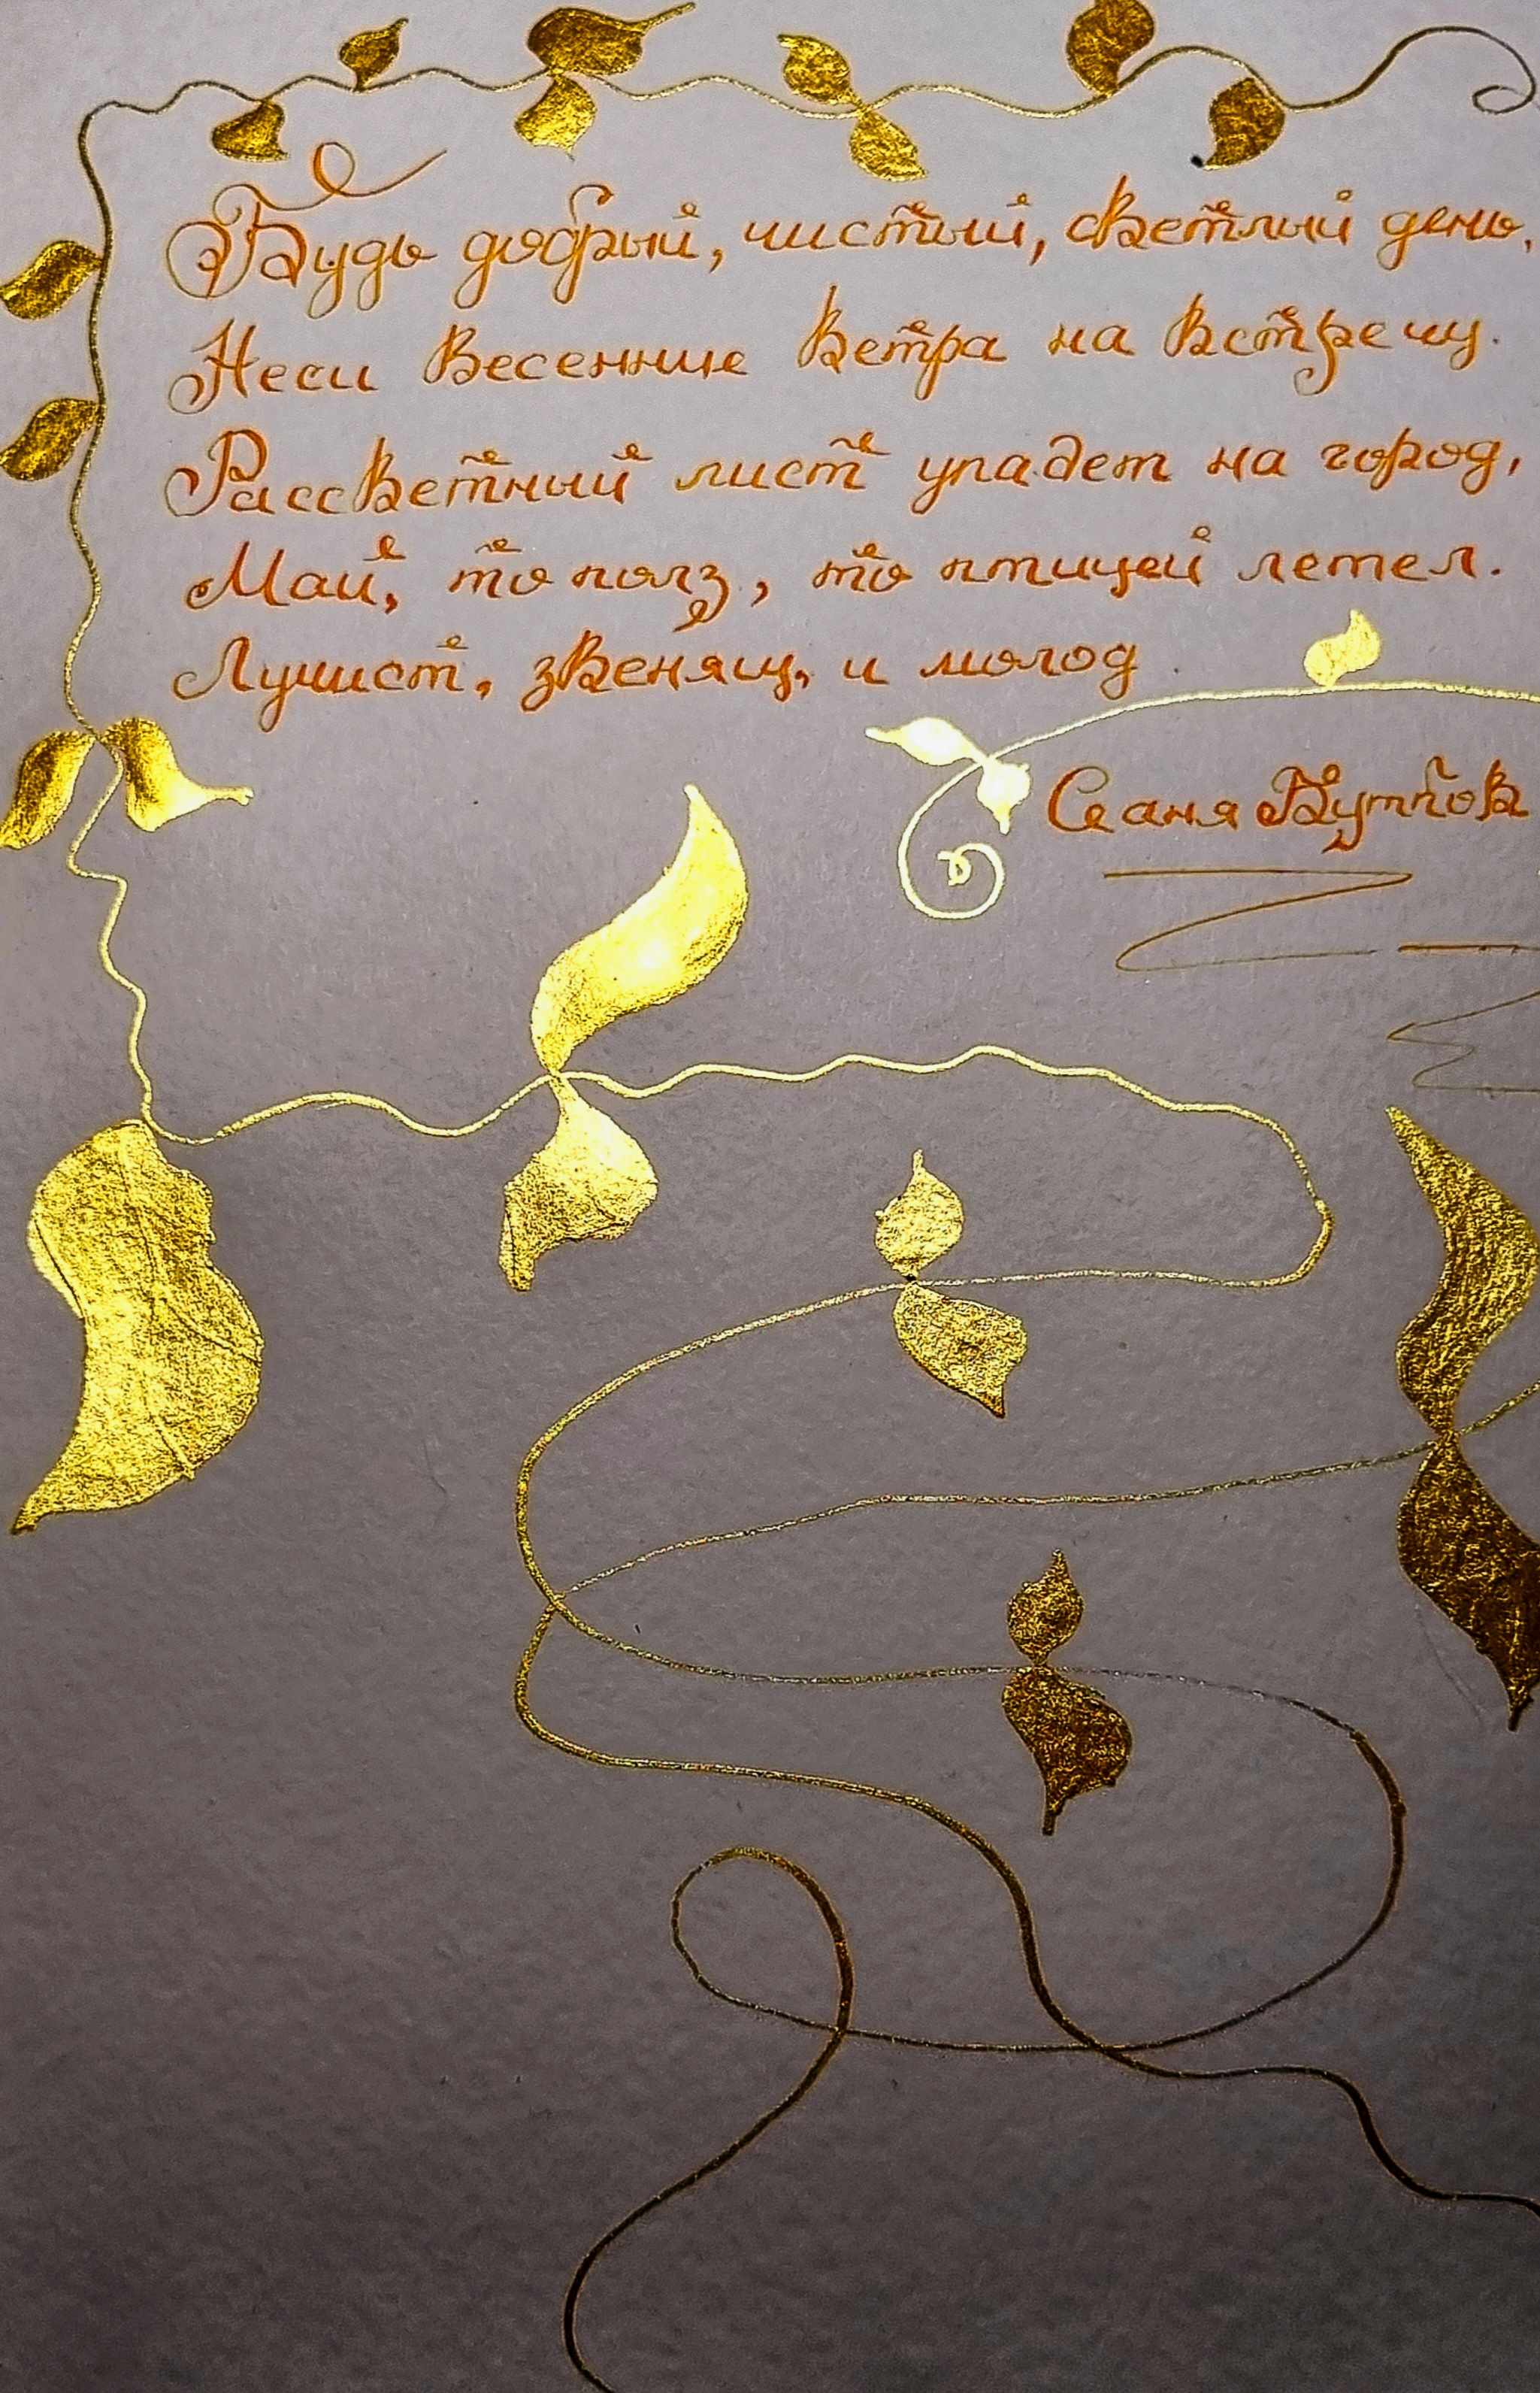 Будь добрый, чистый, светлый день,
Неси Весенние Ветра на Встречу.
Рассветный лист упадет на город,
Май, то полз, то птицей летел.
Лучист, звенящ, и молод
Саня Бутков